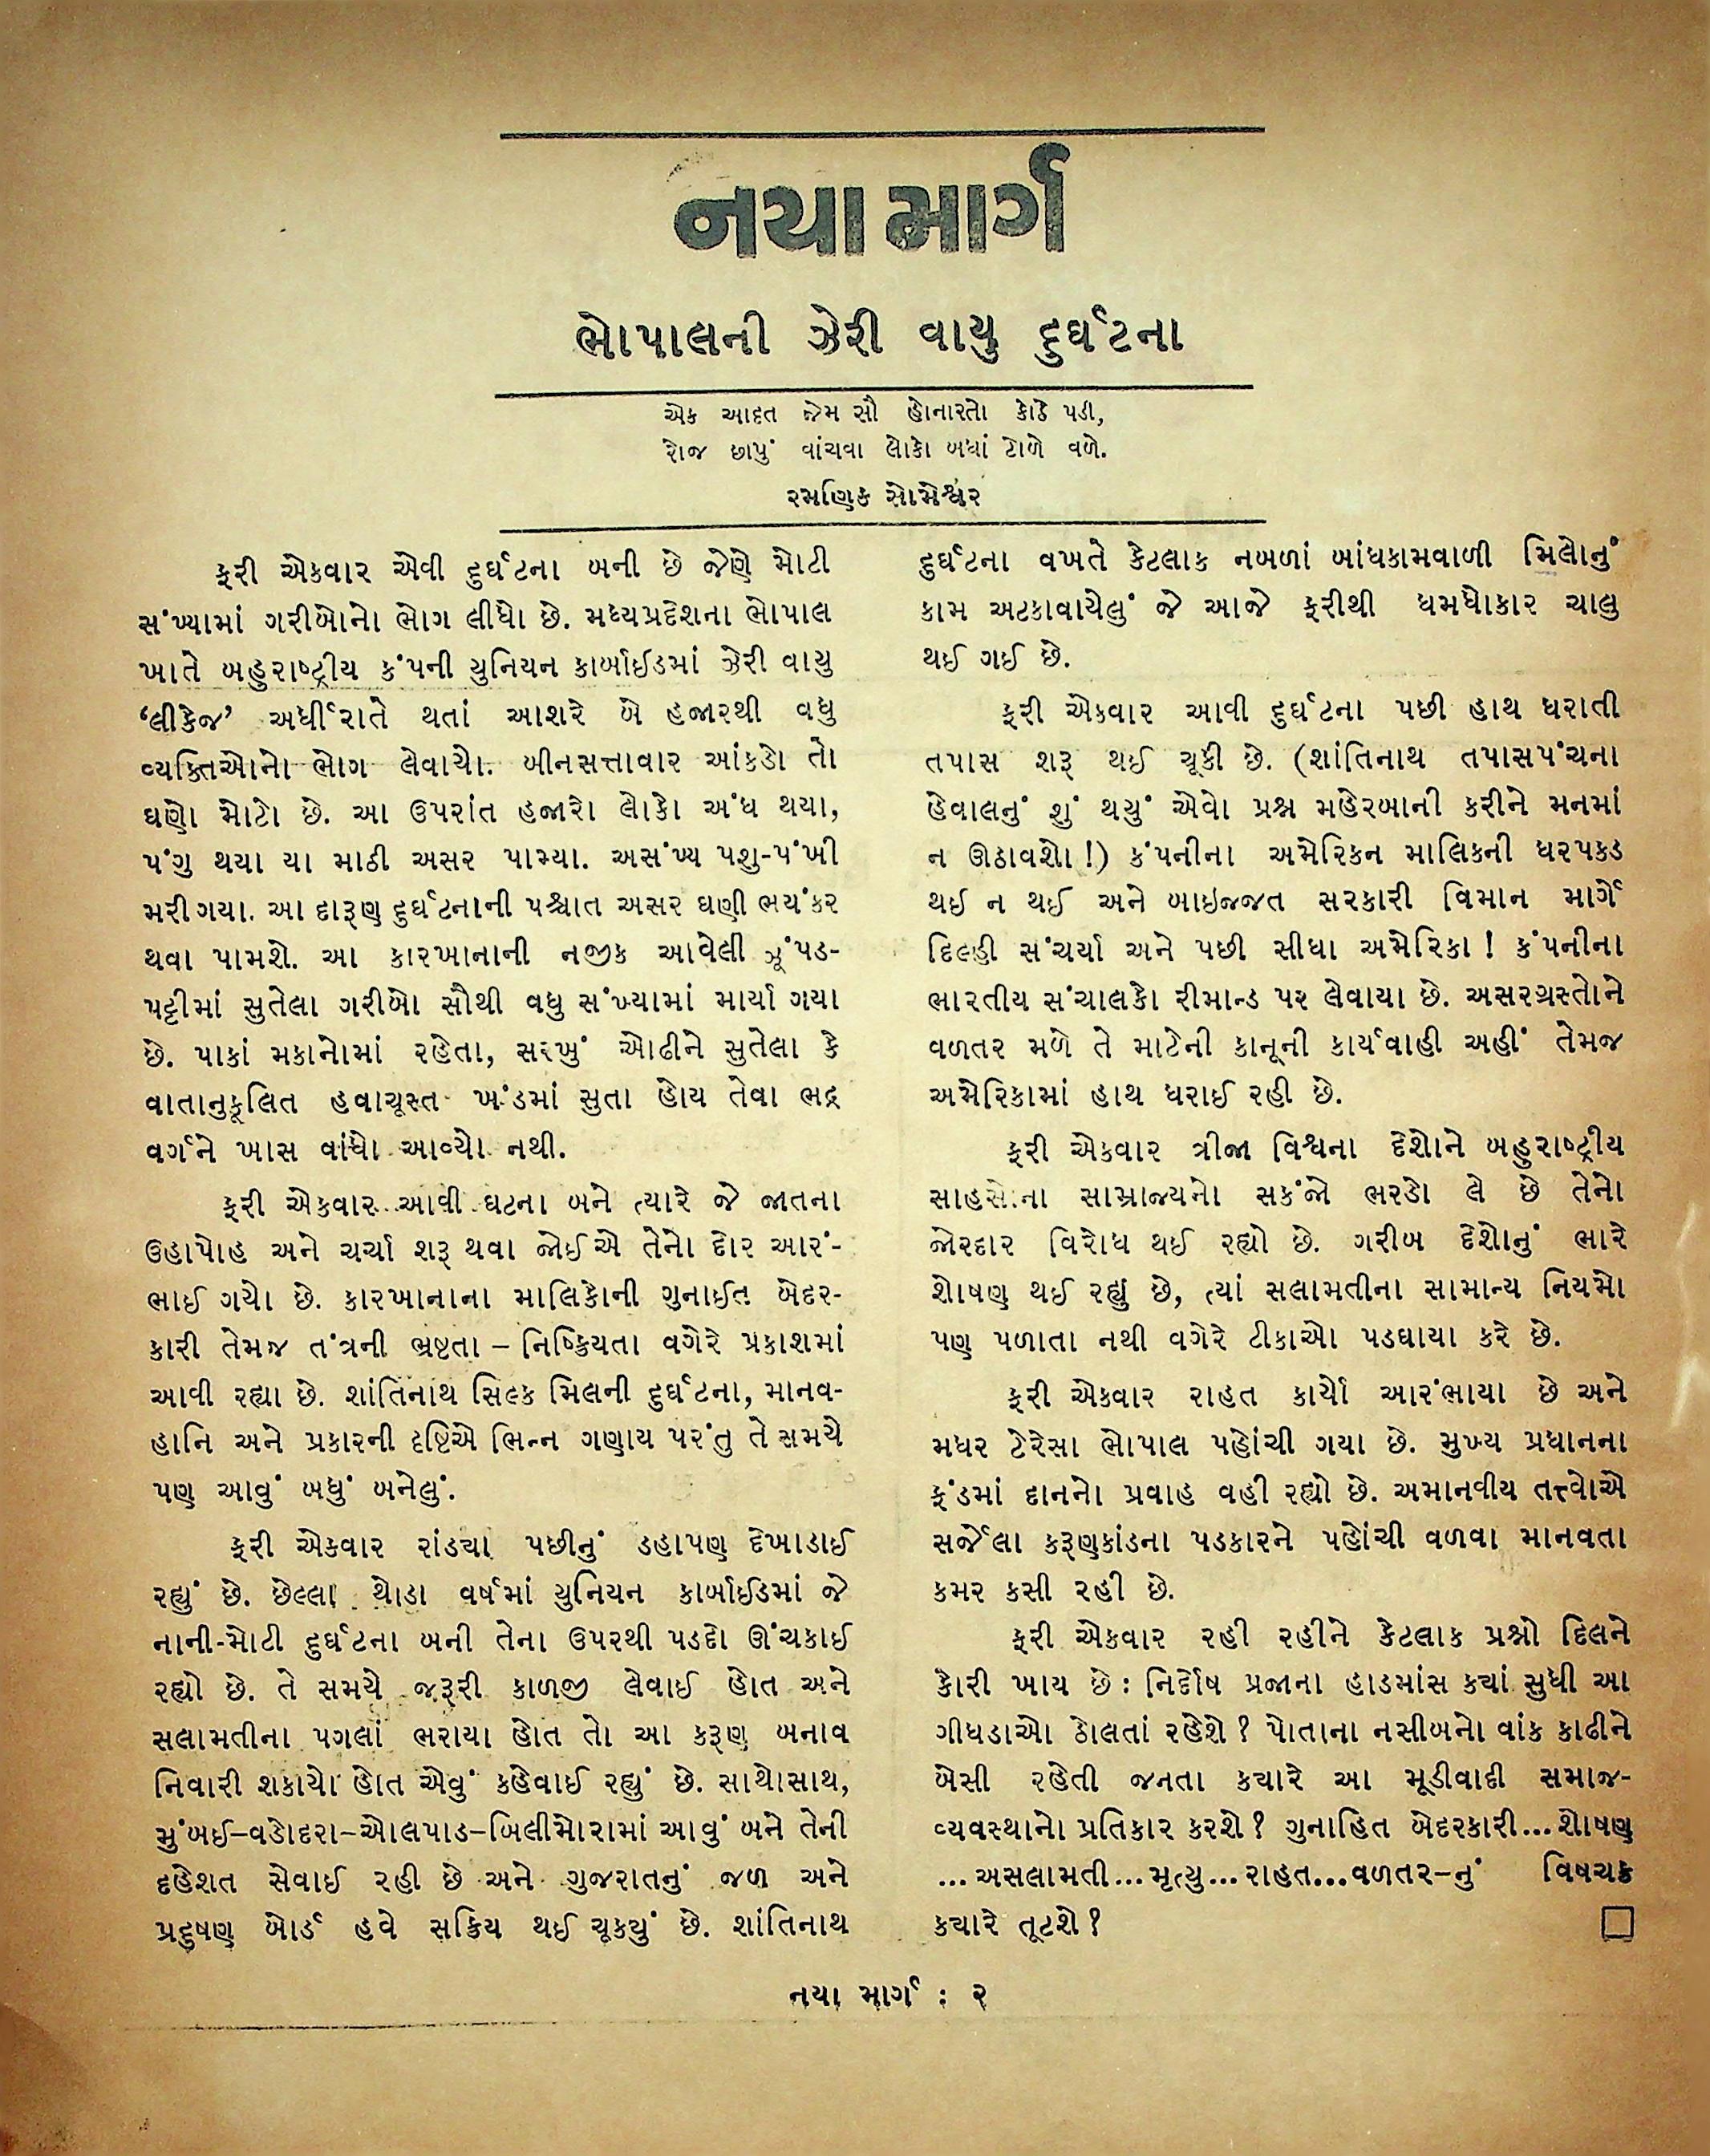 નયા માર્ગ
ભોપાલની ઝેરી વાયુ દુર્ઘટના
એક આદત જેમ સૌ હોનારતો કોઠે પડી,
રોજ છાપું વાંચવા લોકો બધાં ટોળે વળે.
રમણિક સોમેશ્વર
ફરી એકવાર એવી દુર્ઘટના બની છે જેણે મોટી
સંખ્યામાં ગરીબોનો ભોગ લીધો છે. મધ્યપ્રદેશના ભોપાલ
ખાતે બહુરાષ્ટ્રીય કંપની યુનિયન કાર્બાઈડમાં ઝેરી વાયુ
‘લીકેજ’ અર્ધીરાતે થતાં આશરે બે હજારથી વધુ
વ્યક્તિઓનો ભોગ લેવાયો. બીનસત્તાવાર આંકડો તો
ઘણો મોટો છે. આ ઉપરાંત હજારો લોકો અંધ થયા,
પંગુ થયા યા માઠી અસર પામ્યા. અસંખ્ય પશુ-પંખી
મરી ગયા. આ દારૂણ દુર્ઘટનાની પશ્ચાત અસર ઘણી ભયંકર
થવા પામશે. આ કારખાનાની નજીક આવેલી ઝૂંપડ-
પટ્ટીમાં સુતેલા ગરીબો સૌથી વધુ સંખ્યામાં માર્યા ગયા
છે. પાકાં મકાનોમાં રહેતા, સરખું ઓઢીને સુતેલા કે
વાતાનુકૂલિત હવાચૂસ્ત ખંડમાં સુતા હોય તેવા ભદ્ર
વર્ગને ખાસ વાંધો આવ્યો નથી.
ફરી એકવાર આવી ઘટના બને ત્યારે જે જાતના
ઉહાપોહ અને ચર્ચા શરૂ થવા જોઈએ તેનો દોર આરં-
ભાઈ ગયો છે. કારખાનાના માલિકોની ગુનાઈત બેદર-
કારી તેમજ તંત્રની ભ્રષ્ટતા – નિષ્ક્રિયતા વગેરે પ્રકાશમાં
આવી રહ્યા છે. શાંતિનાથ સિલ્ક મિલની દુર્ઘટના, માનવ-
હાનિ અને પ્રકારની દૃષ્ટિએ ભિન્ન ગણાય પરંતુ તે સમયે
પણ આવું બધું બનેલું.
ફરી એકવાર રાંડ્યા પછીનું ડહાપણ દેખાડાઈ
રહ્યું છે. છેલ્લા થોડા વર્ષમાં યુનિયન કાર્બાઈડમાં જે
નાની-મોટી દુર્ઘટના બની તેના ઉપરથી પડદો ઊંચકાઈ
રહ્યો છે. તે સમયે જરૂરી કાળજી લેવાઈ હોત અને
સલામતીના પગલાં ભરાયા હોત તો આ કરૂણ બનાવ
નિવારી શકાયો હોત એવું કહેવાઈ રહ્યું છે. સાથોસાથ,
મુંબઈ–વડોદરા–ઓલપાડ–બિલીમોરામાં આવું બને તેની
દહેશત સેવાઈ રહી છે અને ગુજરાતનું જળ અને
પ્રદુષણ બોર્ડ હવે સક્રિય થઈ ચૂક્યું છે. શાંતિનાથ
દુર્ઘટના વખતે કેટલાક નબળાં બાંધકામવાળી મિલોનું
કામ અટકાવાયેલું જે આજે ફરીથી ધમધોકાર ચાલુ
થઈ ગઈ છે.
ફરી એકવાર આવી દુર્ઘટના પછી હાથ ધરાતી
તપાસ શરૂ થઈ ચૂકી છે. (શાંતિનાથ તપાસપંચના
હેવાલનું શું થયું એવો પ્રશ્ન મહેરબાની કરીને મનમાં
ન ઊઠાવશો!) કંપનીના અમેરિકન માલિકની ધરપકડ
થઈ ન થઈ અને બાઇજ્જત સરકારી વિમાન માર્ગે
દિલ્હી સંચર્યા અને પછી સીધા અમેરિકા! કંપનીના
ભારતીય સંચાલકો રીમાન્ડ પર લેવાયા છે. અસરગ્રસ્તોને
વળતર મળે તે માટેની કાનૂની કાર્યવાહી અહીં તેમજ
અમેરિકામાં હાથ ધરાઈ રહી છે.
ફરી એકવાર ત્રીજા વિશ્વના દેશોને બહુરાષ્ટ્રીય
સાહસોના સામ્રાજ્યનો સકંજો ભરડો લે છે તેનો
જોરદાર વિરોધ થઈ રહ્યો છે. ગરીબ દેશોનું ભારે
શોષણ થઈ રહ્યું છે, ત્યાં સલામતીના સામાન્ય નિયમો
પણ પળાતા નથી વગેરે ટીકાઓ પડઘાયા કરે છે.
ફરી એકવાર રાહત કાર્યો આરંભાયા છે અને
મધર ટેરેસા ભોપાલ પહોંચી ગયા છે. મુખ્ય પ્રધાનના
ફંડમાં દાનનો પ્રવાહ વહી રહ્યો છે. અમાનવીય તત્ત્વોએ
સર્જેલા કરૂણકાંડના પડકારને પહોંચી વળવા માનવતા
કમર કસી રહી છે.
ફરી એકવાર રહી રહીને કેટલાક પ્રશ્નો દિલને
કોરી ખાય છે : નિર્દોષ પ્રજાના હાડમાંસ ક્યાં સુધી આ
ગીધડાઓ ઠોલતાં રહેશે? પોતાના નસીબનો વાંક કાઢીને
બેસી રહેતી જનતા ક્યારે આ મૂડીવાદી સમાજ-
વ્યવસ્થાનો પ્રતિકાર કરશે? ગુનાહિત બેદરકારી...શોષણ
...અસલામતી...મૃત્યુ...રાહત...વળતર–નું વિષચક્ર
ક્યારે તૂટશે? □
નયા માર્ગ : ૨